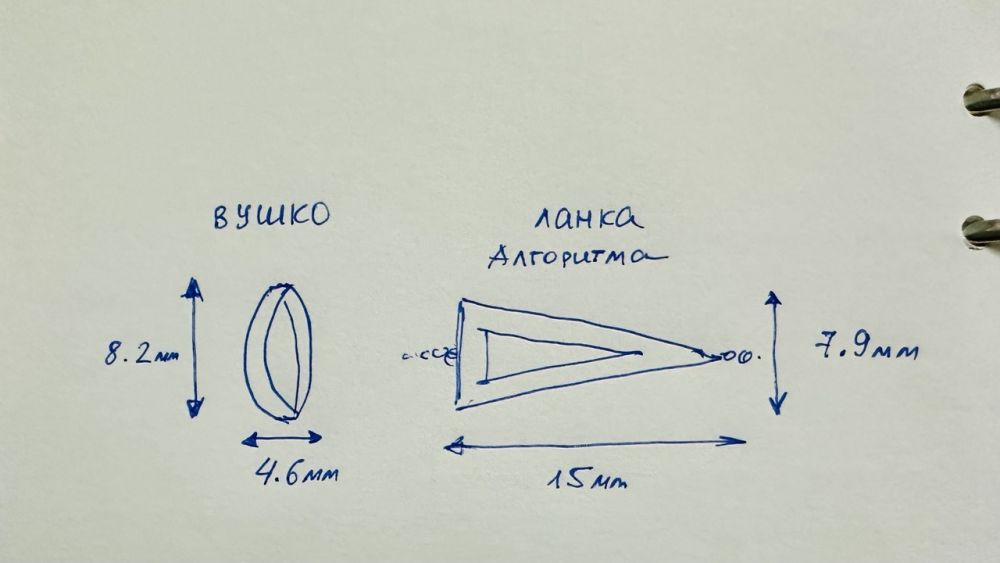 ВУШКО
ЛАНКА
АЛГОРИТМА
8.2мм
4.6мм
15мм
7.9мм